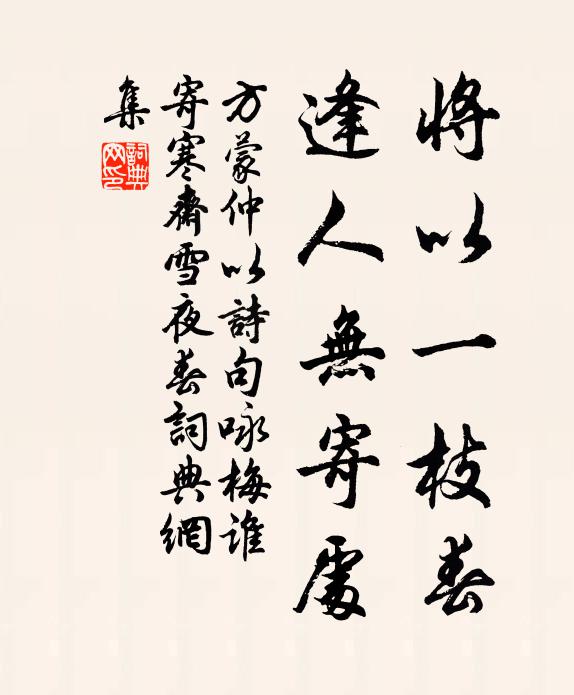 將以一枝春
逢人無寄處
方蒙仲以詩句咏梅誰
寄寒齋雪夜春詞典網
集
詞典
网印